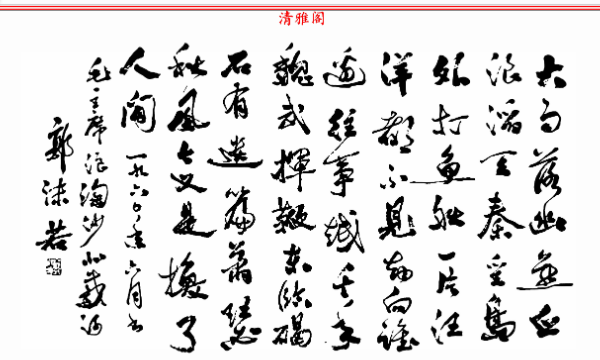 清雅阁
大雨落幽燕白
浪滔天秦皇島
外打魚船一片汪
洋都不見知向誰
邊往事越千年
魏武揮鞭東臨碣
石有遺篇蕭瑟
秋風今又是換了
人間 一九六〇年六月书
毛主席浪淘沙北戴河
郭沫若